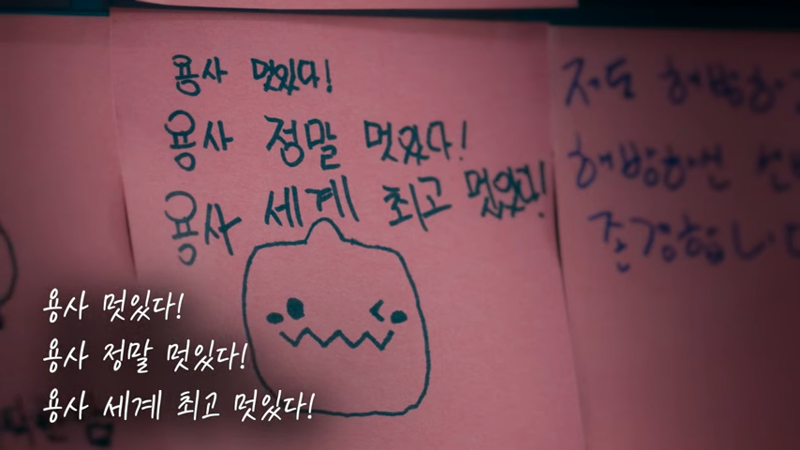 용사 멋있다!
용사 정말 멋있다!
용사 세계 최고 멋있다!
저도
존경합니다
용사 멋있다!
용사 정말 멋있다!
용사 세계 최고 멋있다!